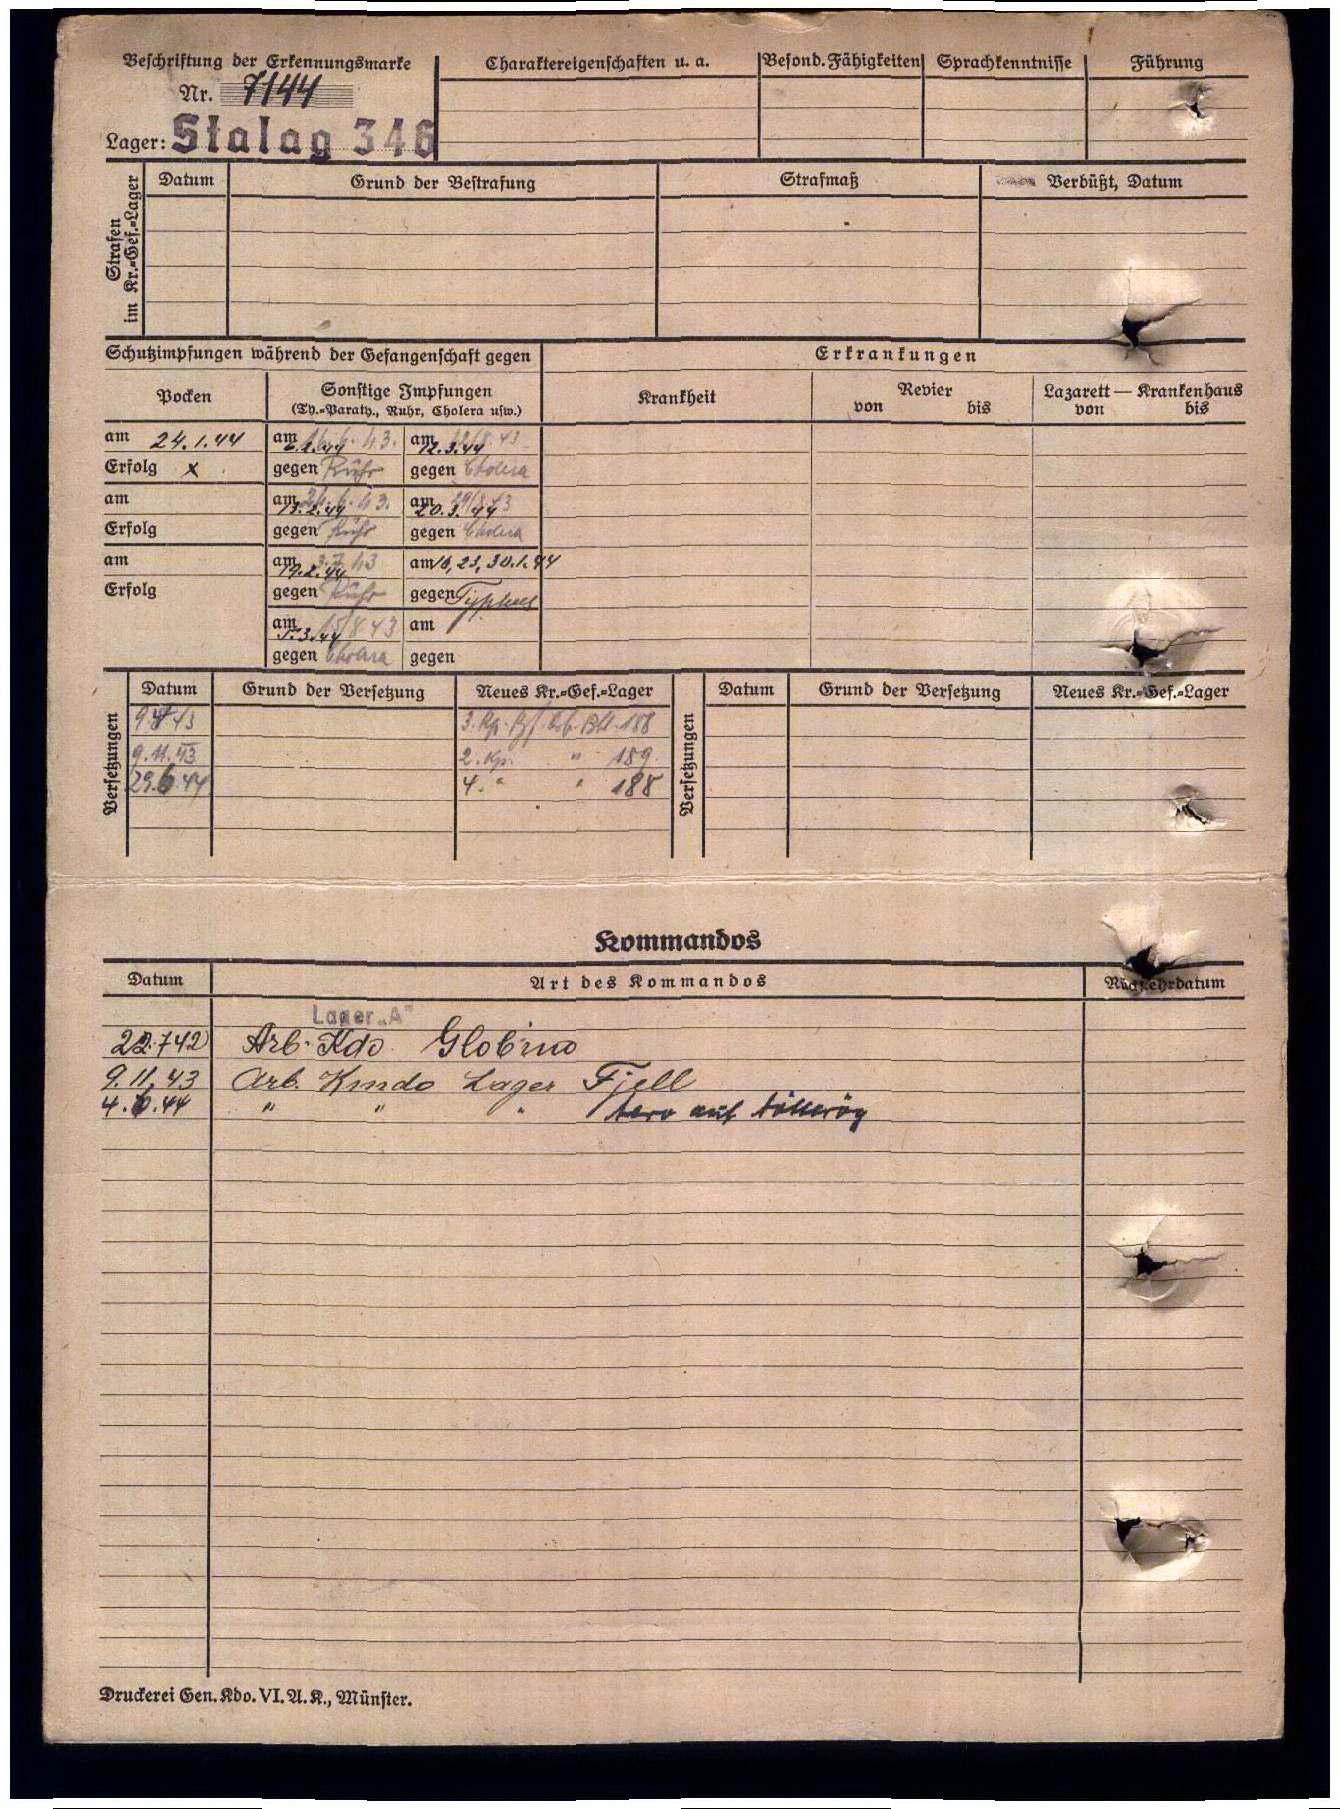 Beschriftung der Erkennungsmarke
Nr. 7144
Lager: Stalag 346
Charaktereigenschaften u. a.
Besond. Fähigkeiten
Sprachkenntnisse
Führung
Strafen
im Kr.-Gef.-Lager
Datum
Grund der Bestrafung
Strafmaß
Verbüßt, Datum
Schutzimpfungen während der Gefangenschaft gegen
Erkrankungen
Pocken
Sonstige Impfungen
(Ty.-Paraty., Ruhr, Cholera usw.)
Krankheit
Revier
von bis
Lazarett — Krankenhaus
von bis
am 24.1.44
Erfolg x
am
Erfolg
am
Erfolg
am 16.6.43.
gegen Ruhr
am 12.3.44
gegen Cholera
am 24.6.43.
13.2.44
gegen Ruhr
am 29/8 43
20.3.44
gegen Cholera
am 3.7.43
19.2.44
gegen Ruhr
am 16, 23, 30.1.44
gegen Typhus
am 15/8 43
5.3.44
gegen Cholera
am
gegen
Versetzungen
Datum
Grund der Versetzung
Neues Kr.-Gef.-Lager
9 43 3. Kp. Btl. 188
9.11.43 2. Kp. " 189
29.6.44 4. " " 188
Versetzungen
Datum
Grund der Versetzung
Neues Kr.-Gef.-Lager
Kommandos
Datum
Art des Kommandos
Rückkehrdatum
Lager „A"
22.7.42 Arb. Kdo. Globino
9.11.43 Arb. Kmdo Lager Fjell
4.6.44 " " " auf
Druckerei Gen. Kdo. VI. A. K., Münster.